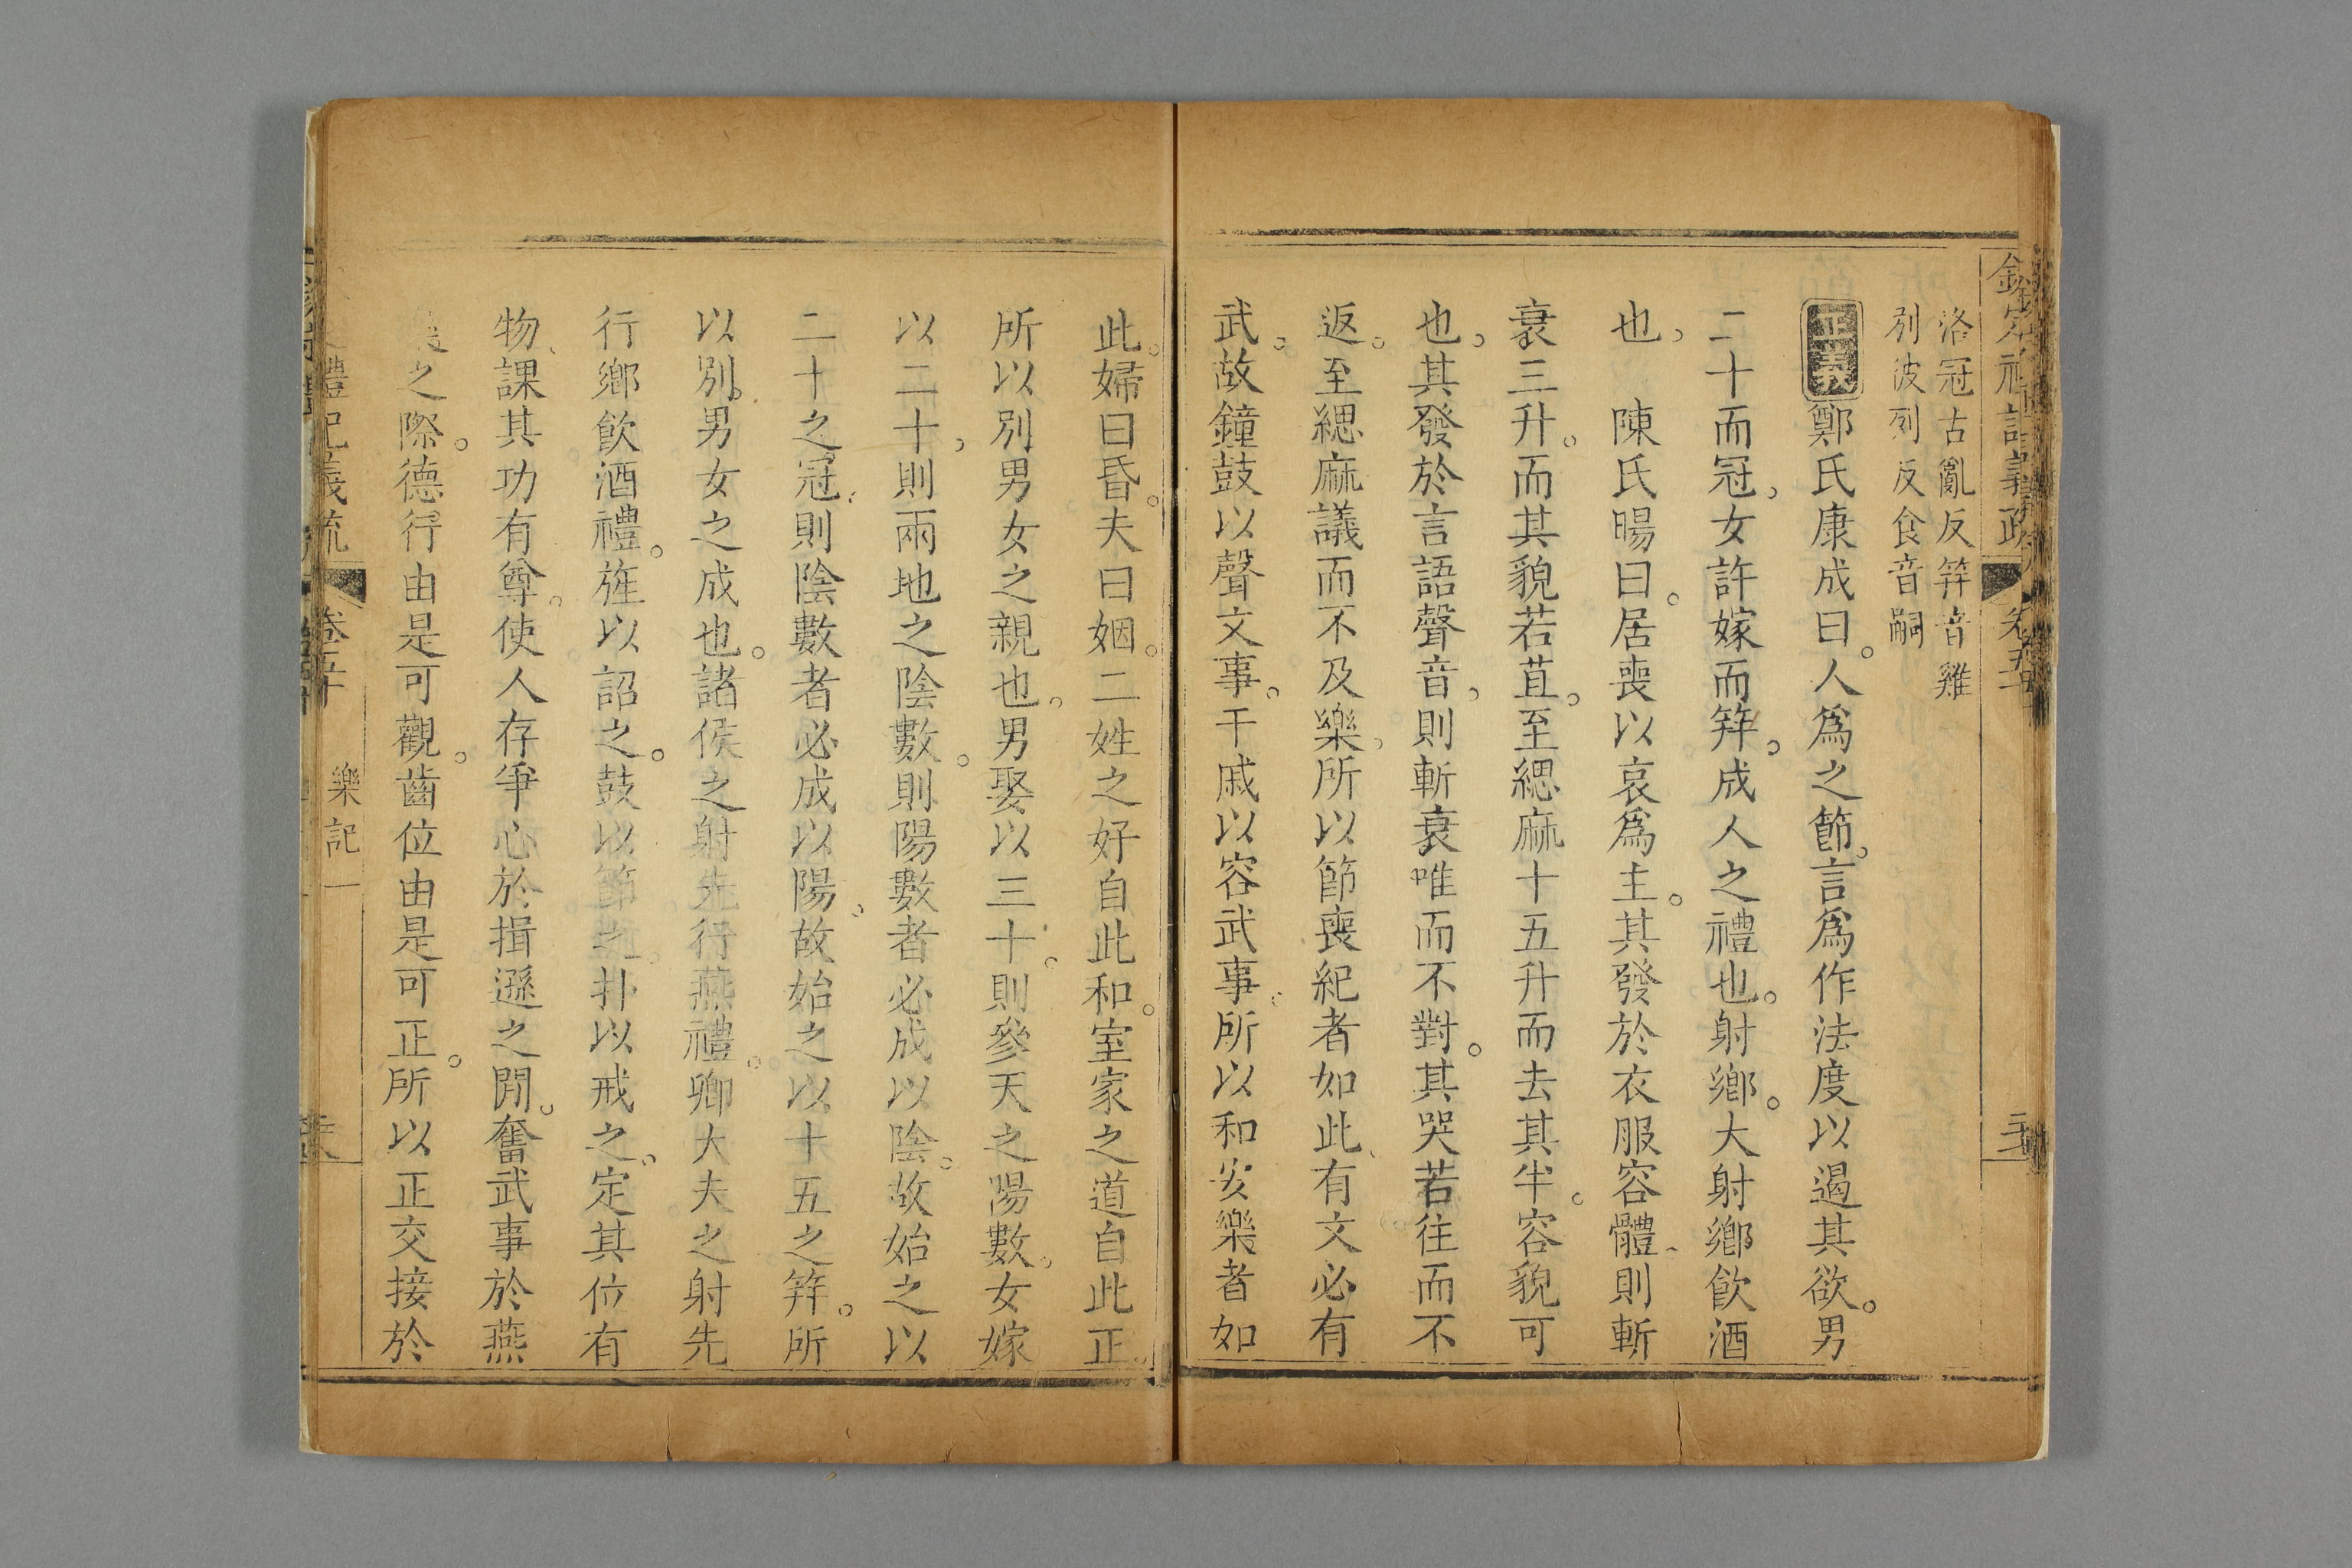 洛冠古亂反笄音雞
別彼列反食音嗣
正義鄭氏康成曰。人爲之節。言爲作法度以遏其欲。男
二十而冠。女許嫁而笄。成人之禮也。射鄉。大射鄉飲酒
也。陳氏暘曰。居喪以哀爲主。其發於衣服容體、則斬
衰三升。而其貌若苴。至緦麻十五升而去其半。容貌可
也。其發於言語聲音。則斬衰唯而不對。其哭若往而不
返。至緦麻議而不及樂。所以節喪紀者如此、有文必有
武。故鐘鼓以聲文事。干戚以容武事。所以和安樂者如
此。婦曰昏。夫曰姻。二姓之好自此和。室家之道自此正。
所以別男女之親也。男娶以三十。則參天之陽數。女嫁
以二十。則兩地之陰數。則陽數者必成以陰。故始之以
二十之冠。則陰數者必成以陽。故始之以十五之笄。所
以別男女之成也。諸侯之射先行燕禮。卿大夫之射先
行鄉飲酒禮。旌以詔之。鼓以節之。扑以戒之。定其位有
物、課其功有尊。使人存爭心於揖遜之閒。奮武事於燕
之際。德行由是可觀。齒位由是可正。所以正交接於
禮記義疏
卷五十
樂記一